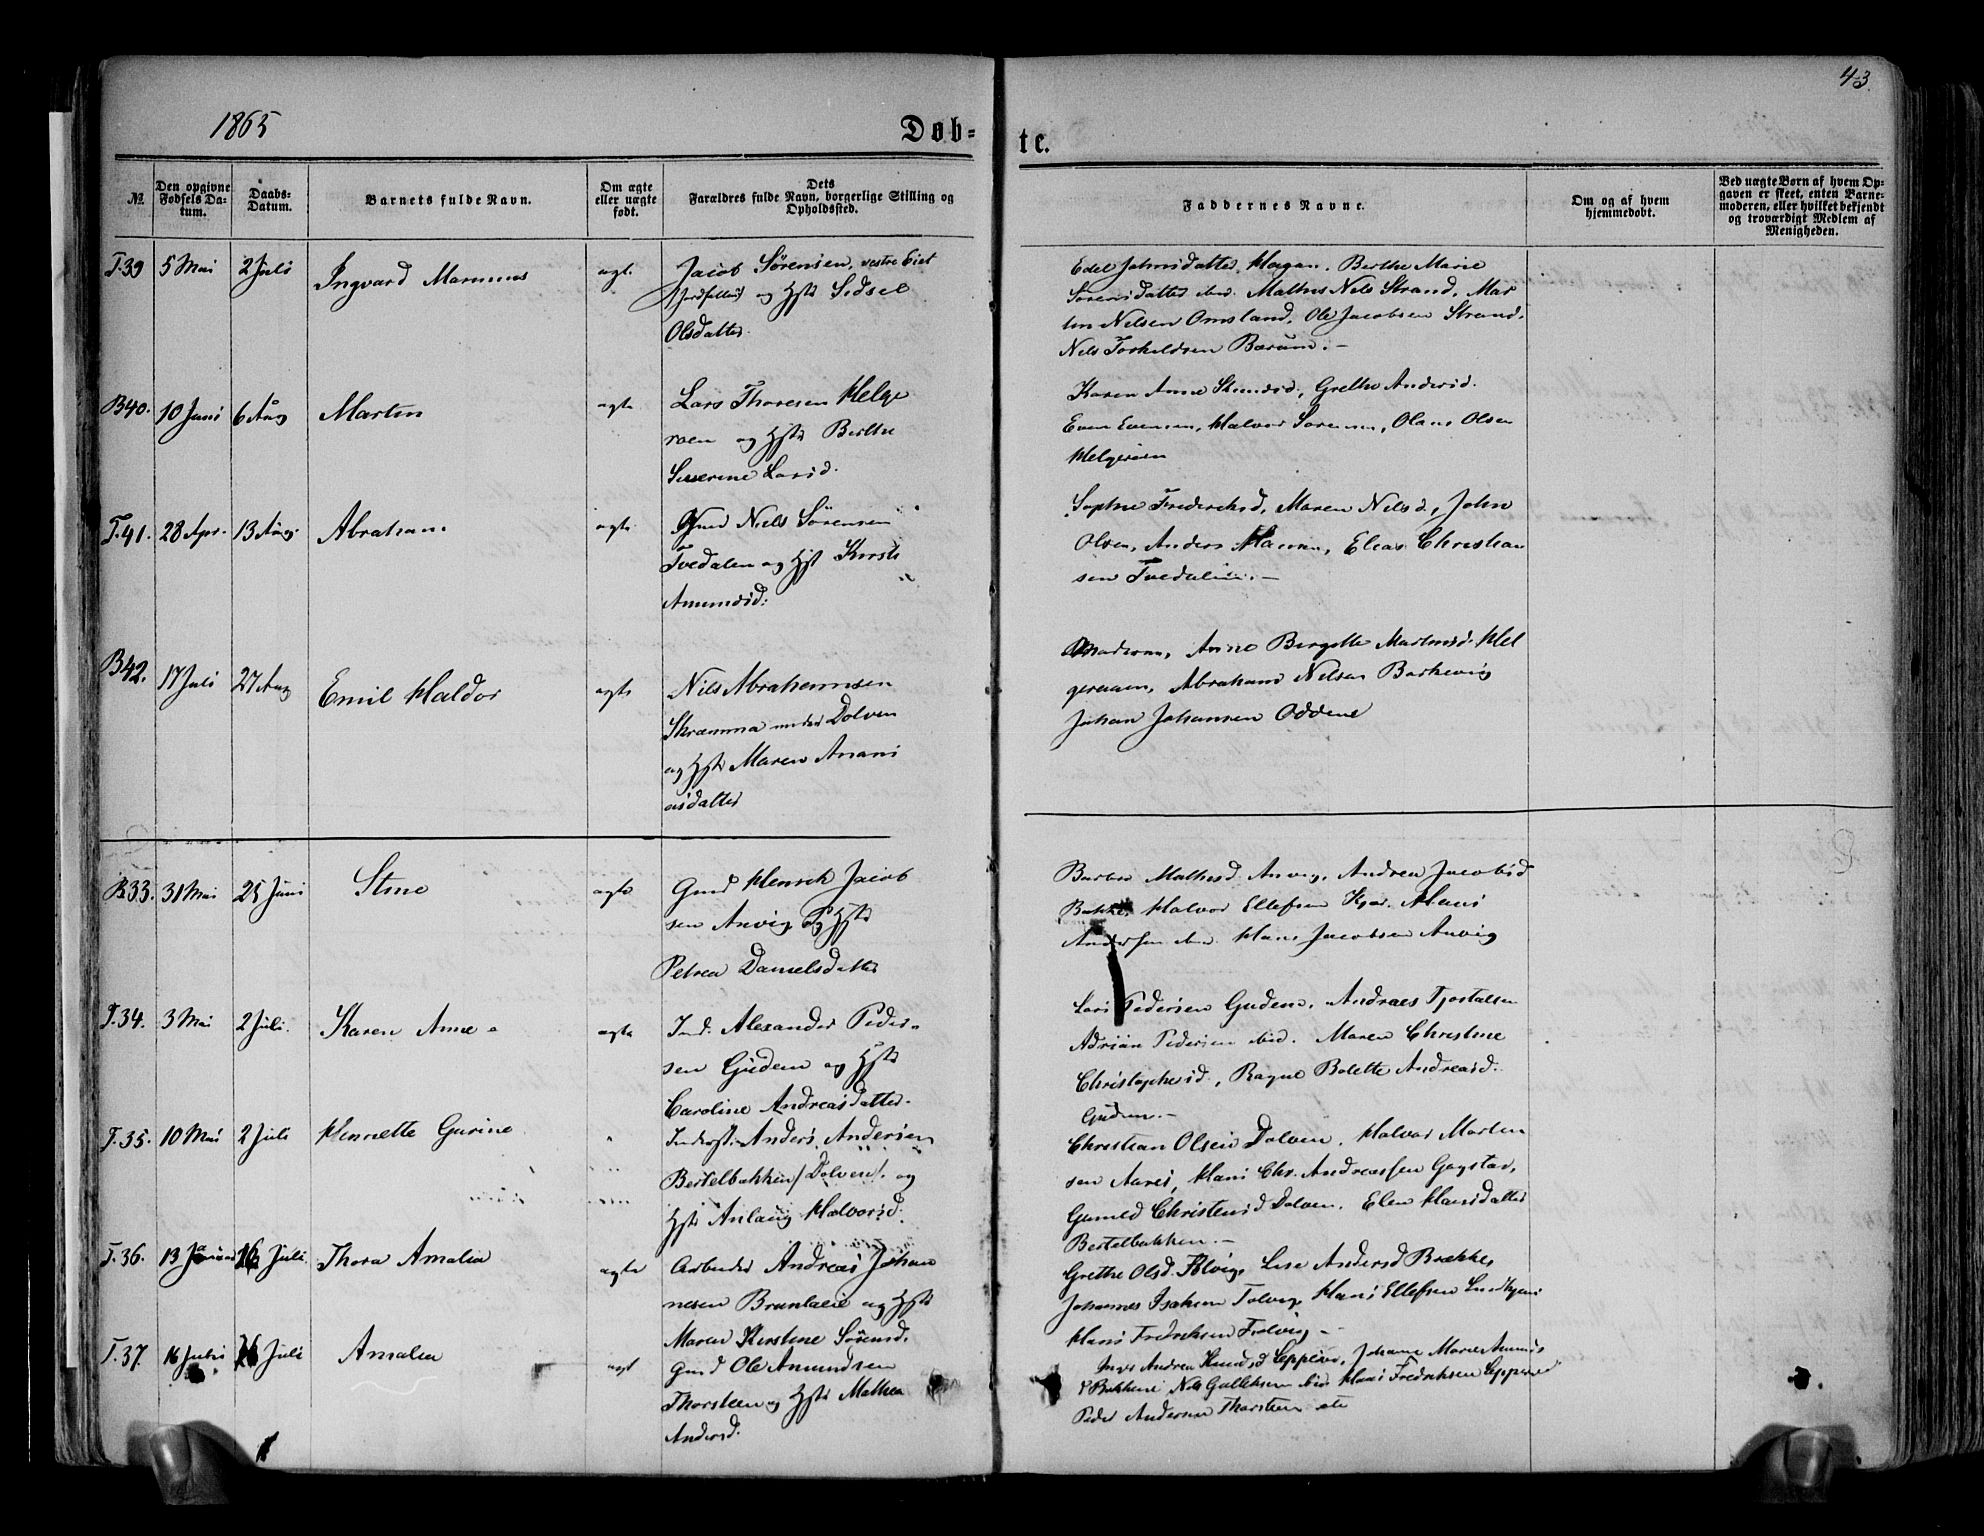 1865
Døb-
te.
43.
№
Den opgivne
Fødsels Da-
tum.
Daabs-
Datum.
Barnets fulde Navn.
Om ægte
eller uægte
født.
Dets
Forældres fulde Navn, borgerlige Stilling og
Opholdssted.
Faddernes Navne.
Om og af hvem
hjemmedøbt.
Ved uægte Børn af hvem Op-
gaven er skeet, enten Barne-
moderen, eller hvilket bekjendt
og troværdigt Medlem af
Menigheden.
T.39 5 Mai 2 Juli Ingvard Marinius ægte
Jacob Sørensen, vestre
og Hst Sidsel
Olsdatter
Edel Johnsdatter, Hagan. Berthe Marie
Sorensdatter ibid. Mathis Nils Strand, Mar
tin Nilsen Omsland, Ole Jacobsen Strand,
Nils Torkildsen Bærum. —
B40. 10 Juni 6 Aug Martin ægte
Lars Thoresen Helge
roen og Hst Berthe
Severine Larsd.
Karen Anne Grethe Andersd.
Even Evensen, Halvor Sorensen, Olaus Olsen
Helgeroen
T.41. 28 Apr. 13 Aug. Abraham ægte
Gmd Niels Sörensen
Tvedalen og Hst Kirsti
Amundsd:
Sophie Frederiksd, Maren Nilsd, John
Olsen, Anders Hansen, Elias Christian
sen Tvedalen. —
B42. 17 Juli 27 Aug Emil Haldor ægte
Nils Abrahamsen
Skræmma under Dolven
og Hst Maren Anani
asdatter
Moderen, Anne Birgitte Martinsd. Hel
geroen, Abraham Nilsen Barkevig
Johan Johansen Oddene
B33. 31 Mai 25 Juni Stine ægte
Gmd Henrik Jacob
sen Anvig og Hst
Petrea Danielsdatter
Barbro Mathisd Anvig, Andrea Jacobsd
Bakke, Halvor Ellefsen Hans
Andersen ibid. Hans Jacobsen Anvig
T.34. 3 Mai 2 Juli. Karen Anne ægte
Ind. Alexander Peder-
sen Gudem og Hst
Caroline Andreasdatter.
Lars Pedersen Gudem, Andreas Tjostelsen
Adrian Pedersen ibid. Maren Christine
Christophersd, Ragne Bolette Andreasd.
Gudem. —
T.35. 10 Mai 2 Juli Henriette Gurine "
Inderst. Anders Andersen
Bertelbakken (Dolven). og
Hst Anlaug Halvorsd.
Christian Olsen Dolven, Halvor Morten
sen Aarø, Hans Chr. Andreassen Gogstad,
Gunild Christensd Dolven, Elen Hansdatter
Bertelbakken. —
T.36. 13 Januar 16 Juli Thora Amalia ægte
Arbeider Andreas Johan
nesen Brunlaie og Hst
Maren Kirstine Sörensd.
Grethe Olsd. Lise Andersd Brække,
Johannes Isaksen Hans Ellefsen
Hans Fredriksen —
T.37. 16 Juli Amalia ægt
Gmd Ole Amundsen
Thorsteen og Hst Mathea
Andersd.
Inger Andrea Knudsd Johanne Marie
Bakkene Nils Gulleksen ibid Hans Fredriksen
Peder Andersen Thorsteen